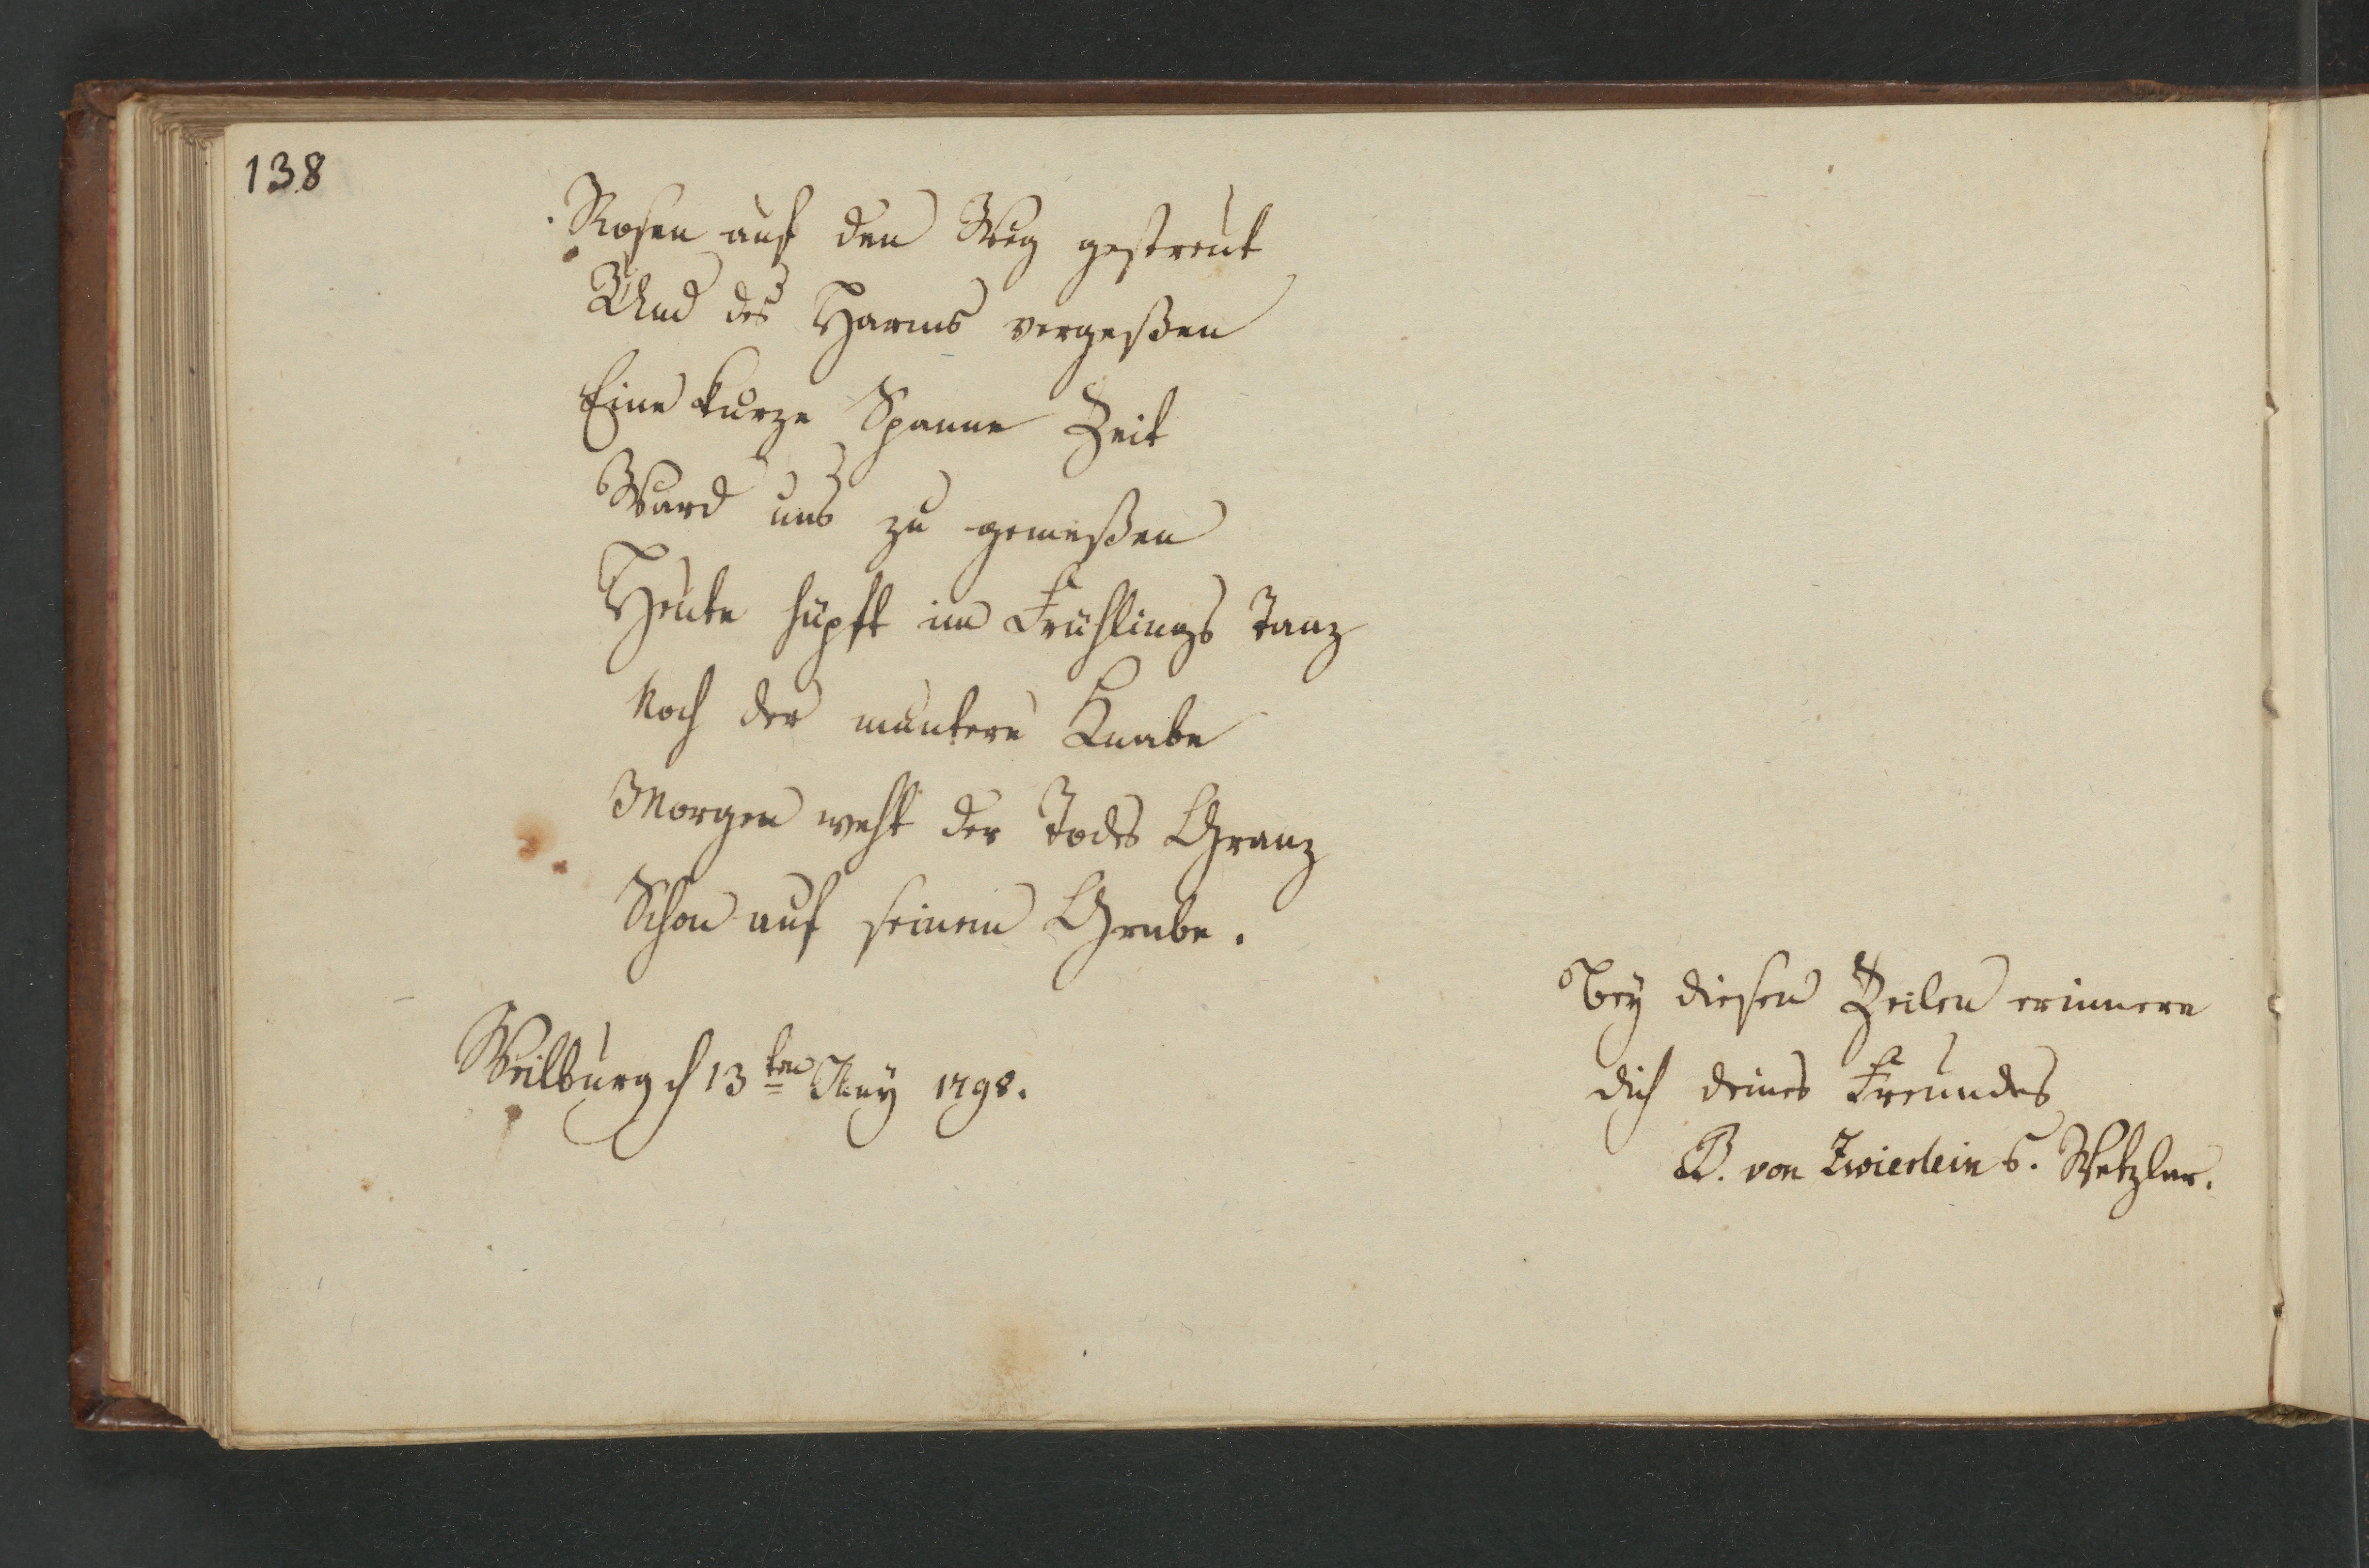 138
Rosen auf den Weg gestreut
Und des Harms vergeßen
Eine kurze Spanne Zeit
Ward uns zu gemeßen
Heute hüpft im Frühlings Tanz
Noch der muntere Knabe
Morgen weht der Todes Granz
Schon auf seinem Grabe.
Weilburg d 13ten 1798.
Bey diesen Zeilen erinnere
dich deines Freundes
B. von Zwierlein Wetzlar.